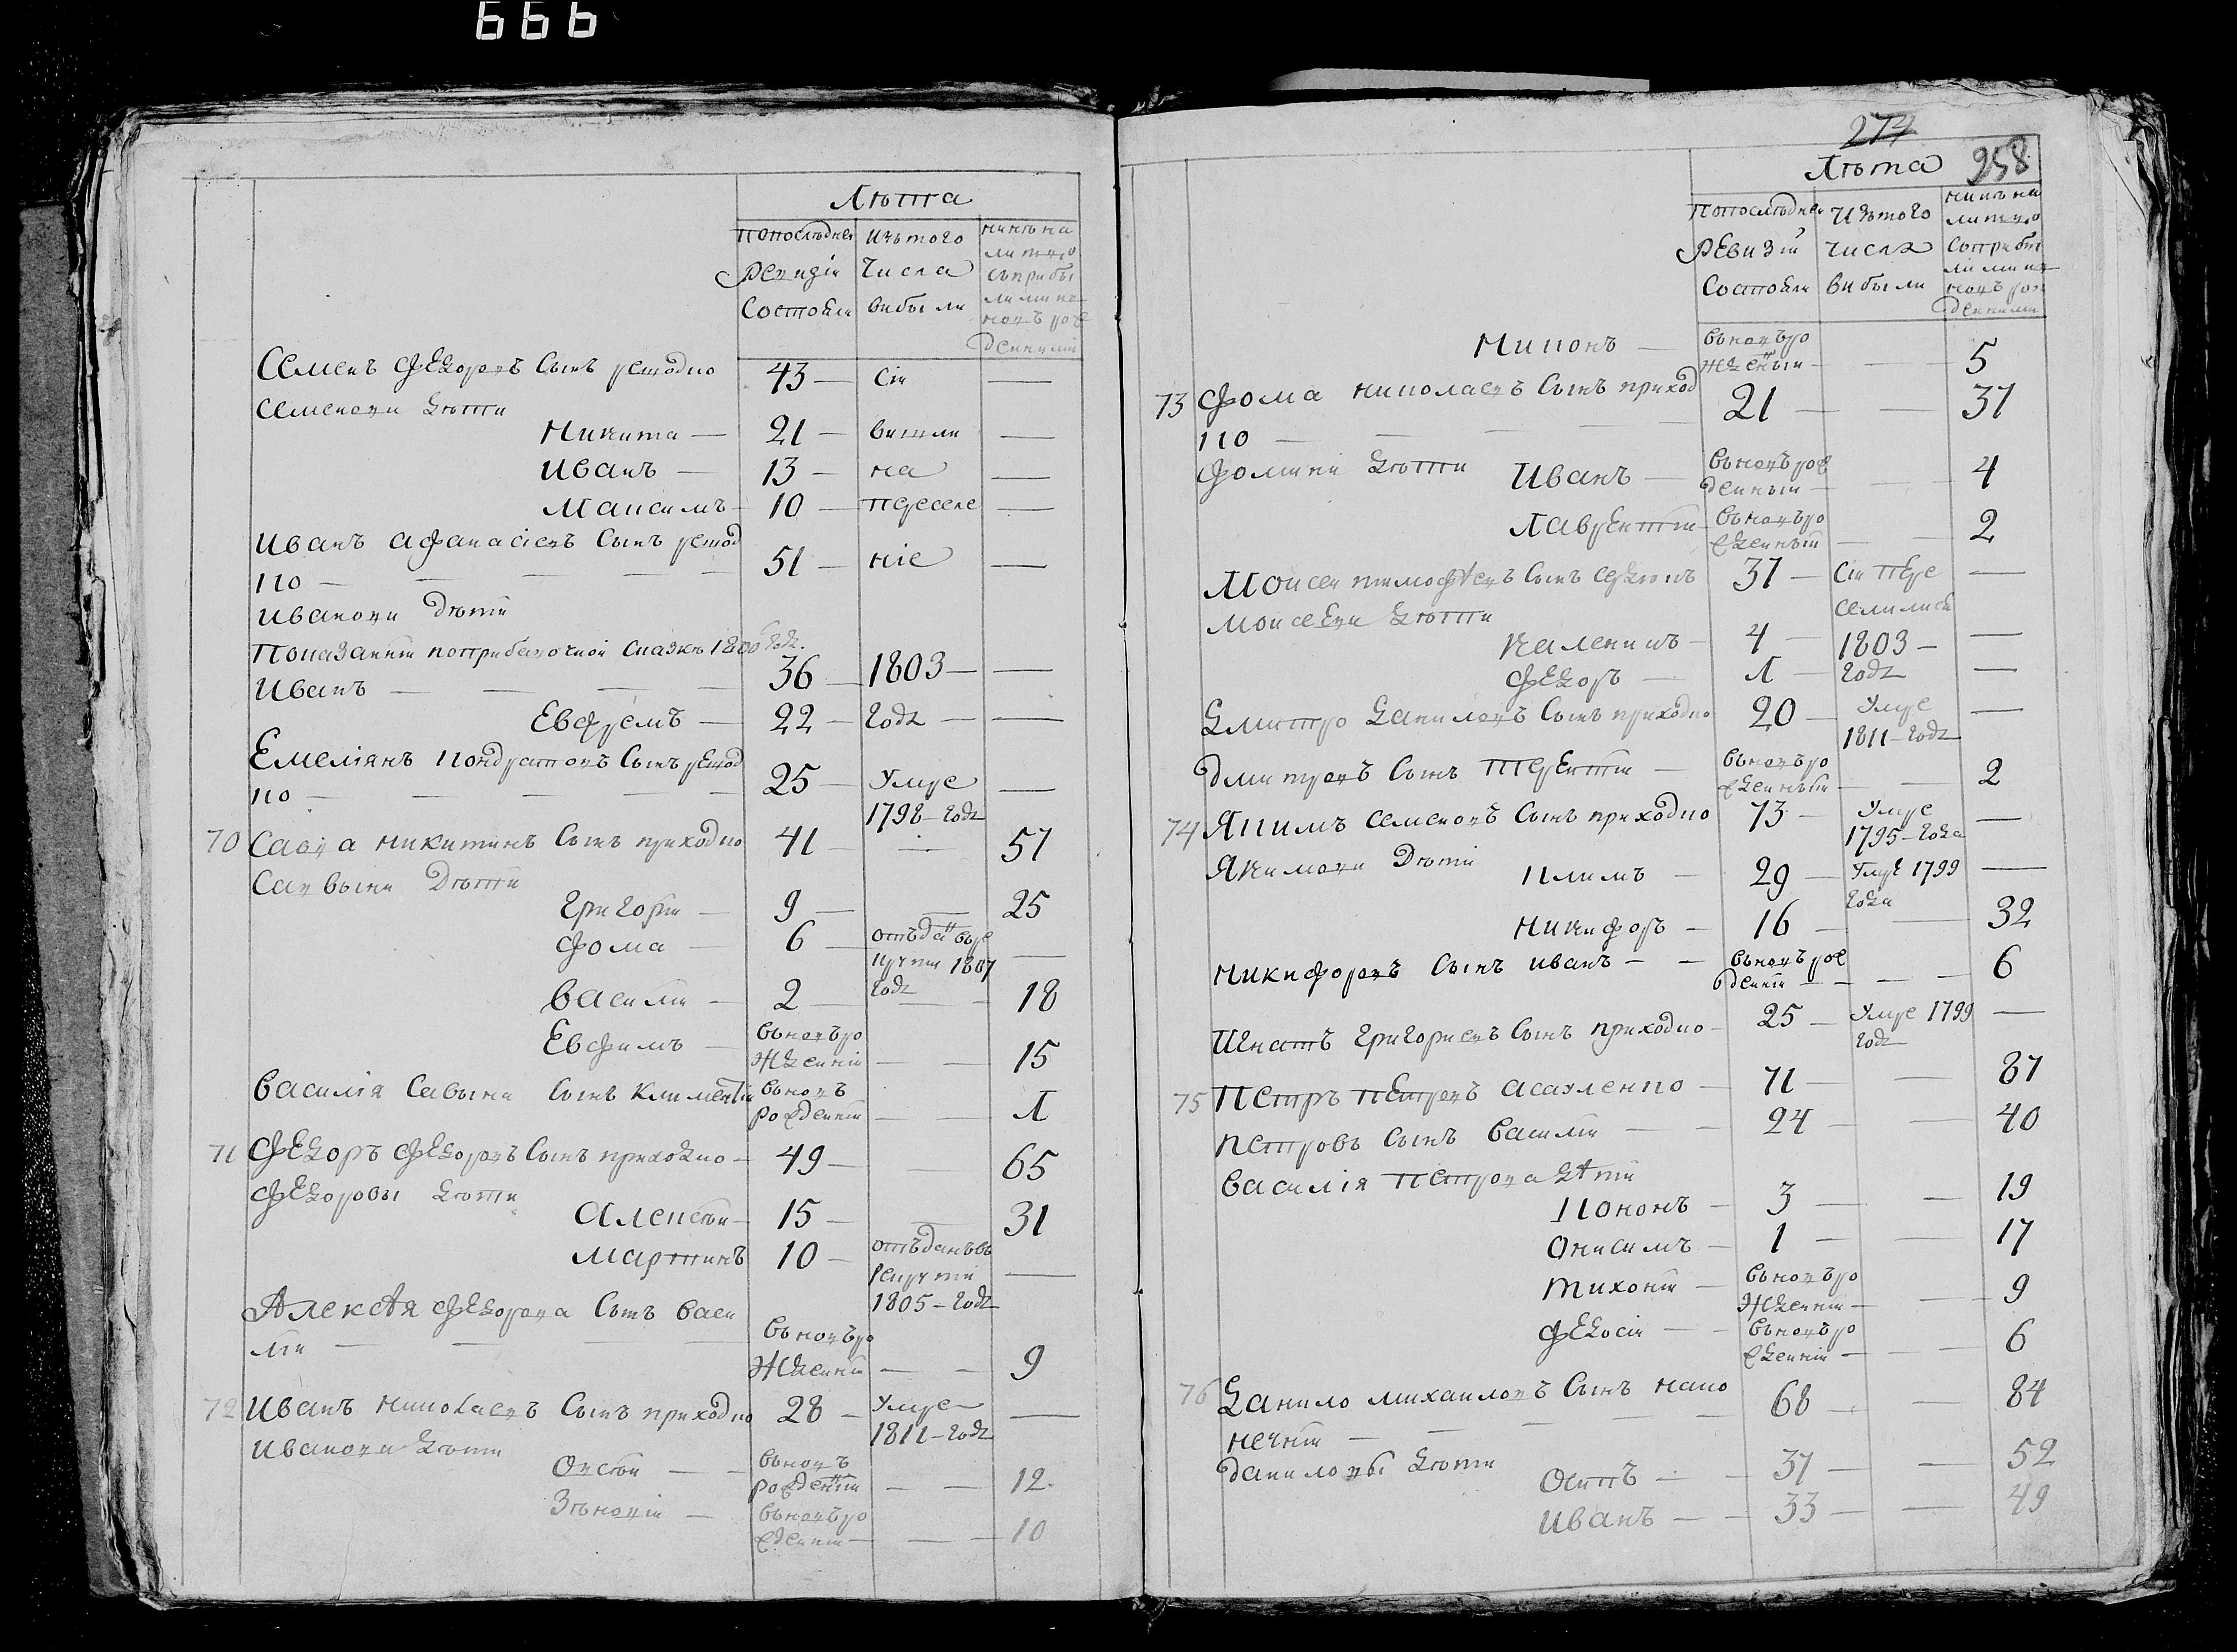 666
Лѣта
Попоследнеи
ревизіи
Состояли
Изъ того
числа
выбыли
ныне на
лицо
съприбы
лими и в
новъ рож
денними
Семенъ Федоровъ Сынъ редко 43 — Сіи —
Семенови дѣти
Никита — 21 — вишли —
Иванъ — 13 — на —
Максимъ — 10 — переселе —
Иванъ Афанасіевъ Сынъ
ко — 51 — ніе —
Иванови дѣти
Показанніи поприбавочной сказкѣ 1800 Года.
Иванъ — 36 — 1803 — —
Евфремъ — 22 — Года — —
Емеліянъ Кондратовъ Сынъ
ко — 25 — Умре —
1798 — Года
70 Савва Никитинъ Сынъ приходко 41 — — 57
Саввыни Дѣти
Григорій — 9 — — 25
Фома — 6 — отъданъ въре
крути 1807 —
Года
Василій — 2 — — 18
Евфимъ — вьновъро
жденній — — 15
Василія Савыни Сынъ Климентій вьновъ
рожденній — — Л
71 Федоръ Федоровъ Сынъ приходко — 49 — — 65
Федоровы дѣти
Алексѣй — 15 — — 31
Мартинъ 10 — отъданъ въ
рекрути —
1805 — Года
Алексѣя Федорова Сынъ Васи
лій — вьновъро
жденній — — 9
72 Иванъ Николаевъ Сынъ приходко 28 — Умре —
1811 — Года
Иванови дѣти
— вьновъ
рожденній — — 12.
Зѣновій — вьновъро
жденній — — 10
274
258
Лѣта
Попоследнеи
Ревизіи
Состояли
Изътого
числа
выбыли
нинѣ на
лицо
Соприбы
лими и в
новъ рож
денними
Никонъ — вьновъро
жденый — — 5
73 Фома Николаевъ Сынъ приход
ко — 21 — — 37
Фомини дѣти Иванъ — вьновъ рож
денный — — 4
Лаврентій вьновъро
жденный — — 2
Моисей Тимофѣевъ Сынъ Сердюкъ 37 — Сіи пере —
Моисееви дѣти селились
Каленикъ — 4 — 1803 — —
Федоръ — Л — Года —
Дмитро Даниловъ Сынъ приходко 20 — Умре —
1811 — Года
Дмитровъ Сынъ Терентій — вьновъро
жденный — — 2
74 Якимъ Семеновъ Сынъ приходко 73 — Умре —
1795 — Года
Якимови Дѣти Климъ — 29 — Умре 1799 —
Года
Никифоръ — 16 — — 32
Никифоровъ Сынъ Иванъ — — вьновъ рож
денній — — 6
Игнатъ Григориевъ Сынъ приходко — 25 — Умре 1799 —
Года
75 Петръ Петровъ Асауленко — 71 — — 87
Петровъ Сынъ Василій — — 24 — — 40
Василія Петрова дѣти
Кононъ — 3 — — 19
Онисимъ — 1 — — 17
Тихоній — вьновъро
жденній — — 9
Федосій — — вьновъро
жденній — — 6
76 Данило Михаиловъ Сынъ Нако
нечній — 68 — — 84
Даниловы дѣти
Осипъ — — 37 — — 52
Иванъ — — 33 — — 49